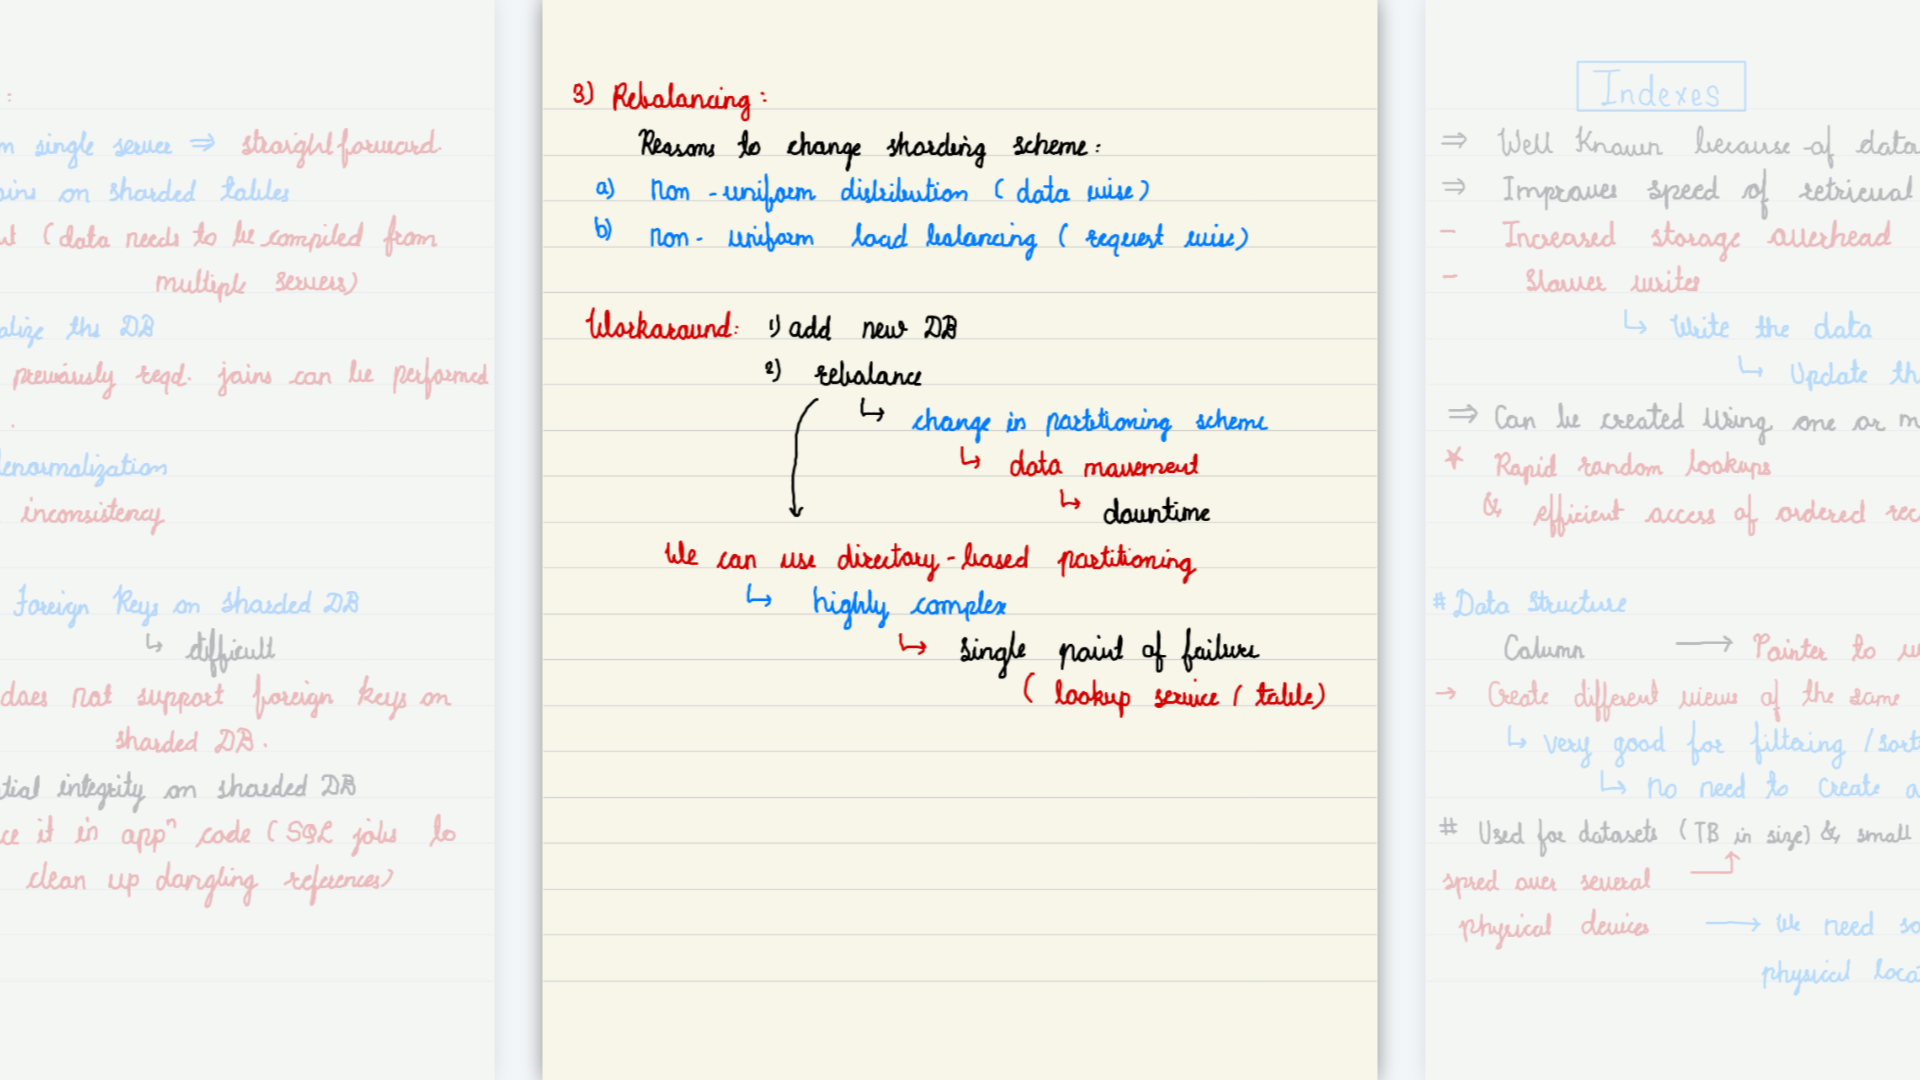 :
n single server ⇒ straightforward.
oins on sharded tables
ut (data needs to be compiled from
multiple servers)
alize the DB
previously reqd. joins can be performed
.
denormalization
inconsistency
Foreign keys on sharded DB
↳ difficult
does not support foreign keys on
sharded DB.
tial integrity on sharded DB
ce it in appⁿ code (SQL jobs to
clean up dangling references)
3) Rebalancing:
Reasons to change sharding scheme:
a) non-uniform distribution (data wise)
b) non-uniform load balancing (request wise)
Workaround: 1) add new DB
2) rebalance
↳ change in partitioning scheme
↳ data movement
↳ downtime
We can use directory-based partitioning
↳ highly complex
↳ single point of failure
(lookup service / table)
Indexes
⇒ Well Known because of data
⇒ Improves speed of retrieval
- Increased storage overhead
- Slower writes
↳ Write the data
↳ Update th
⇒ Can be created using one or m
* Rapid random lookups
& efficient access of ordered rec
# Data Structure
Column → Pointer to w
→ Create different views of the same
↳ very good for filtering / sort
↳ no need to create a
# Used for datasets (TB in size) & small
spred over several
physical devices → We need so
physical loca